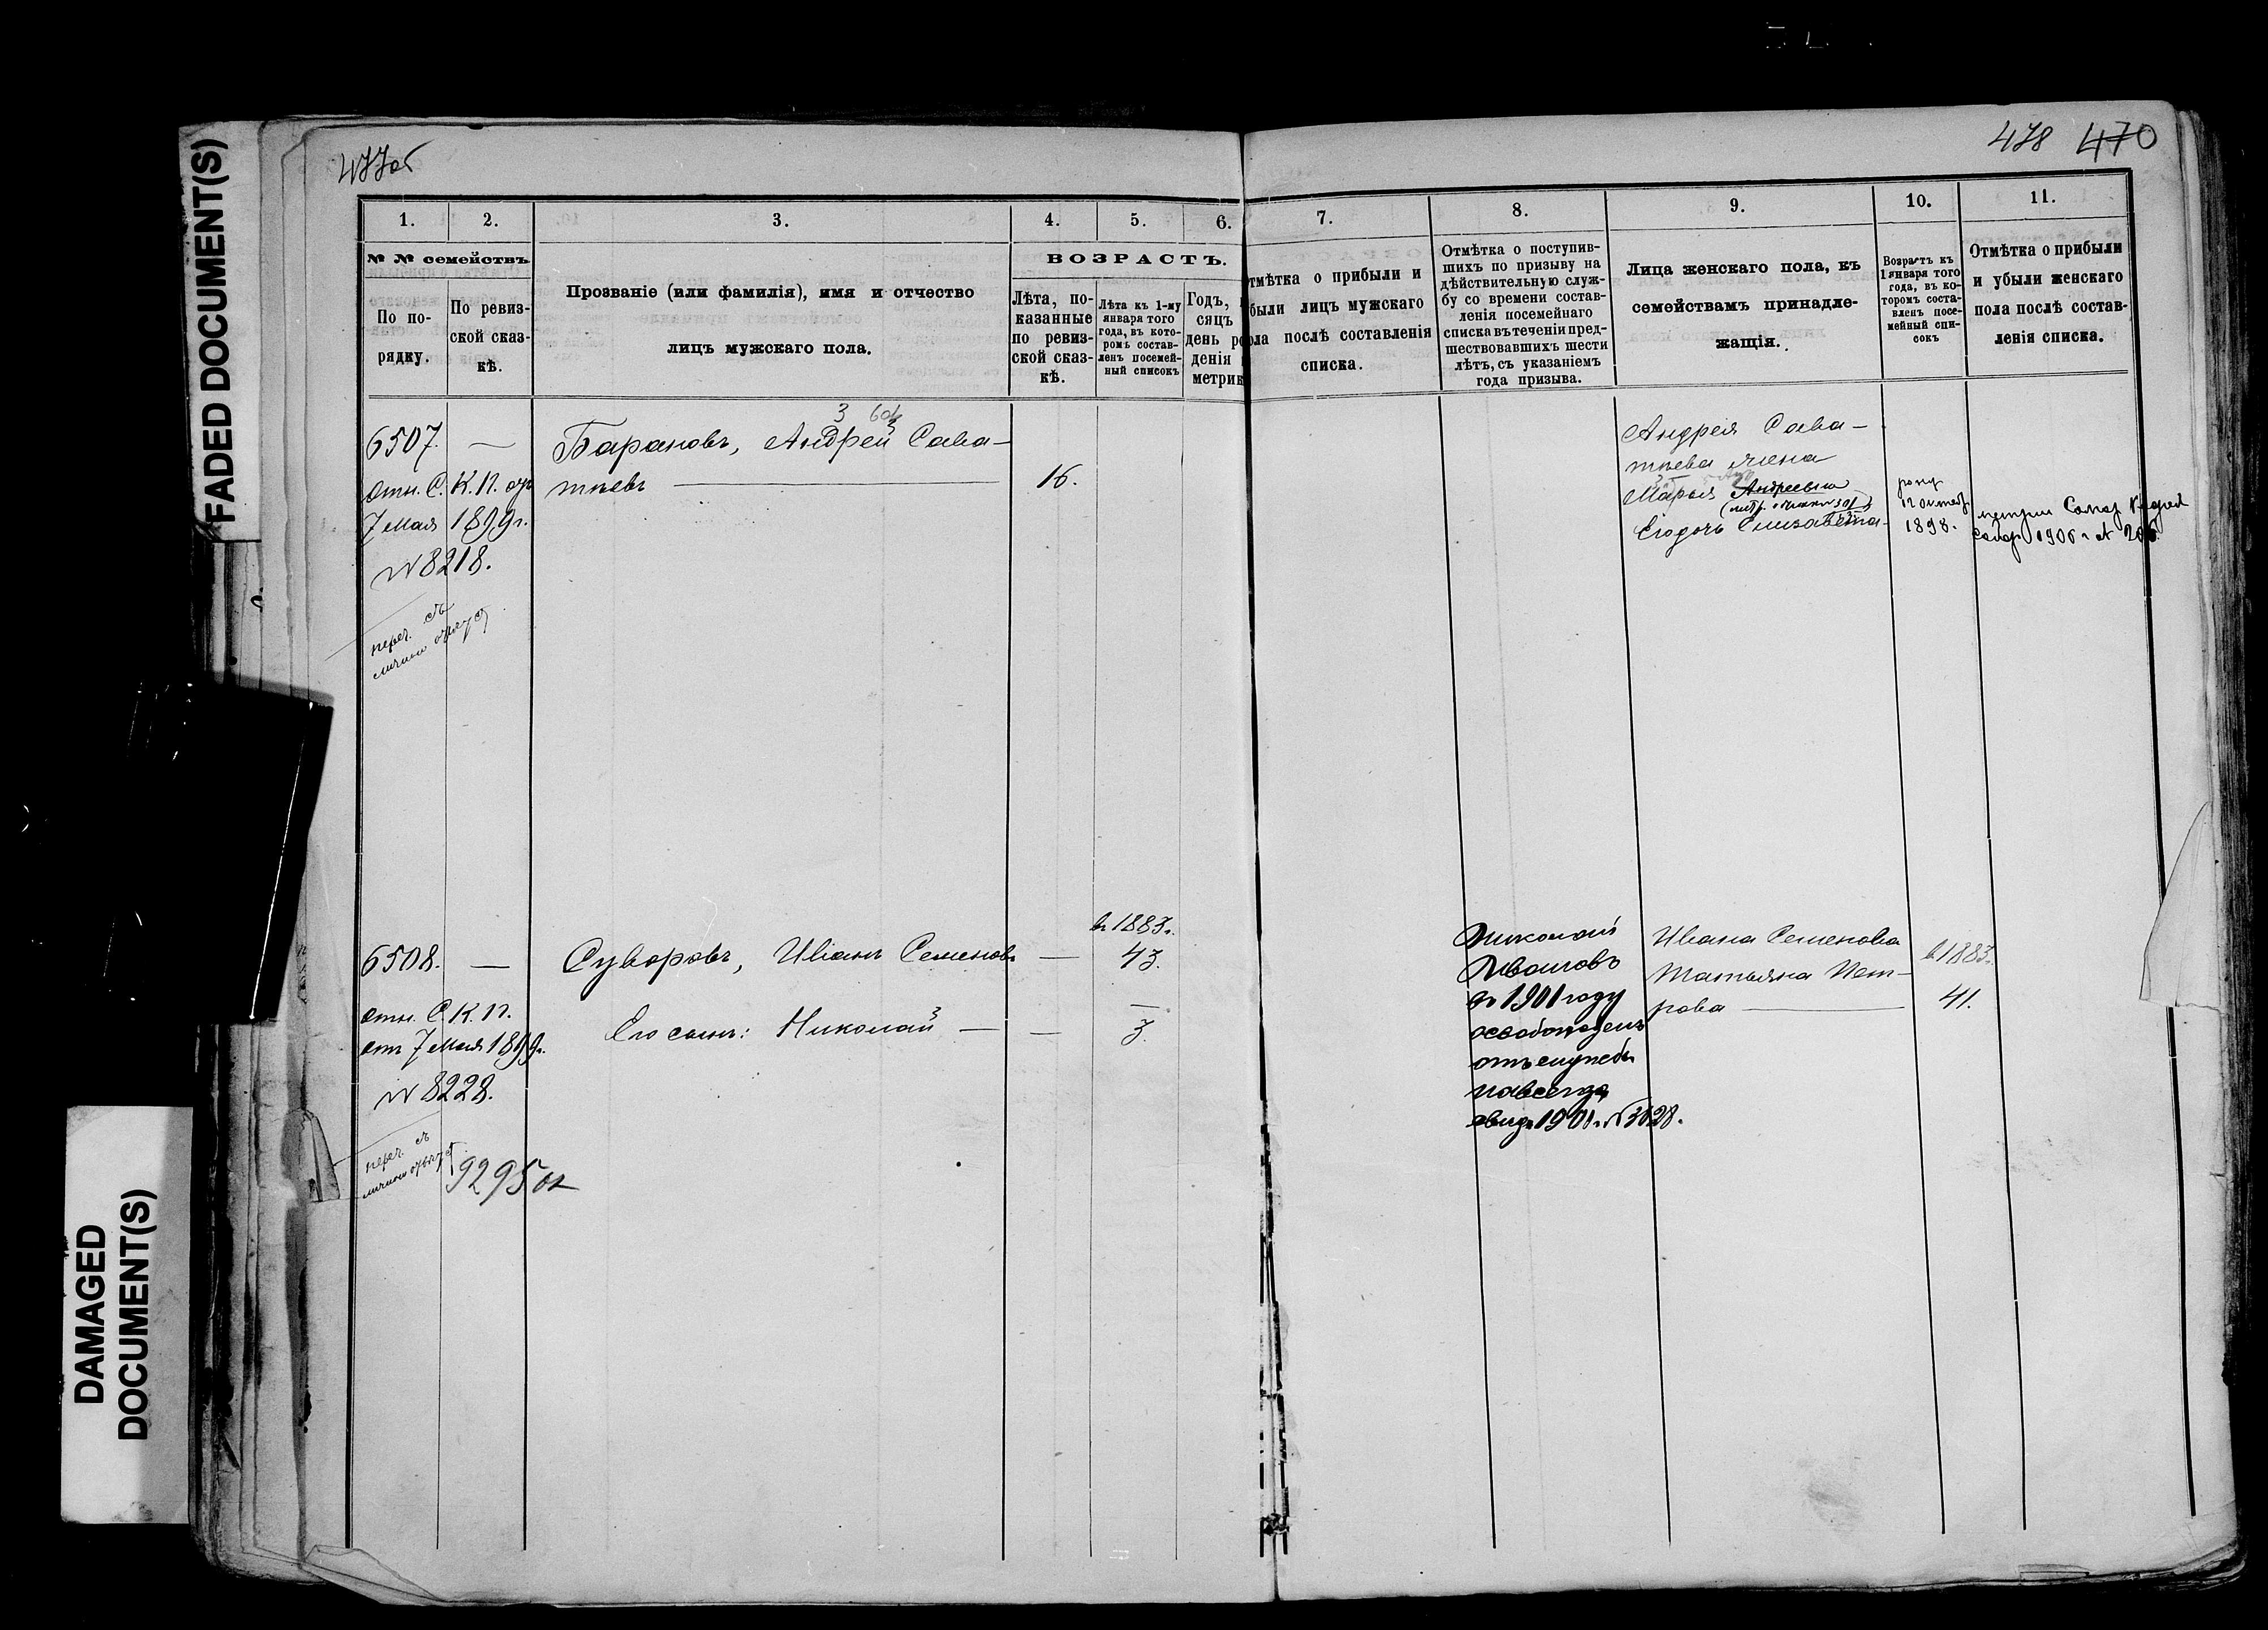 FADED DOCUMENT(S)
DAMAGED
DOCUMENT(S)
477об
478 470
1.
2.
3.
4.
5.
6.
№ № семействъ
По по-
рядку.
По ревиз-
ской сказ-
кѣ.
Прозваніе (или фамилія), имя и отчество
лицъ мужскаго пола.
ВОЗРАСТЪ.
Лѣта, по-
казанные
по ревиз-
ской сказ-
кѣ.
Лѣта къ 1-му
января того
года, въ кото-
ромъ состав-
ленъ посемей-
ный списокъ
Годъ,
сяцъ
день ро
денія
метрик
7.
8.
9.
10.
11.
тмѣтка о прибыли и
были лицъ мужскаго
ола послѣ составленія
списка.
Отмѣтка о поступив-
шихъ по призыву на
дѣйствительную служ-
бу со времени состав-
ленія посемейнаго
списка въ теченіи пред-
шествовавшихъ шести
лѣтъ, съ указаніемъ
года призыва.
Лица женскаго пола, къ
семействамъ принадле-
жащія.
Возрастъ къ
1 января того
года, въ ко-
торомъ соста-
вленъ посе-
мейный спи-
сокъ
Отмѣтка о прибыли
и убыли женскаго
пола послѣ состав-
ленія списка.
6507. — Барановъ, Андрей Сава-
тѣевъ — 16.
Отн. С. К. П. отъ
7 Мая 1899 г.
№ 8218.
переч. съ
Андрея Сава-
тѣева жена
Марья Андреевна
Его дочь Елизавета
род
12 октяб
1898.
1906 г. №
6508. — Суворовъ, Иванъ Семеновъ —
в 1883 г.
43.
Отн. С. К. П.
отъ 7 Мая 1899 г.
№ 8228.
Его сынъ: Николай — — 3.
переч. съ
9295 ок
Николай
Ивановъ
въ 1901 году
освобожденъ
отъ службы
навсегда
свид. 1901 г. № 3628.
Ивана Семенова
Татьяна Пет-
рова —
в 1883 г.
41.